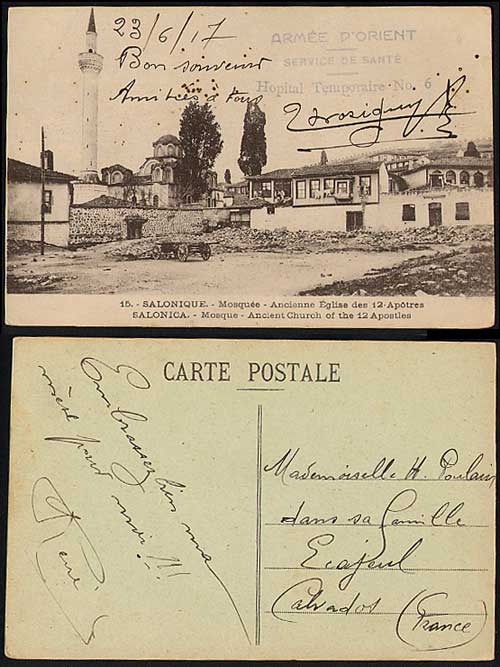 23/6/17
Bon souvenir
Amitiés à tous
ARMÉE D'ORIENT
SERVICE DE SANTÉ
Hopital Temporaire No. 6
15. - SALONIQUE. - Mosquée - Ancienne Église des 12-Apôtres
SALONICA. - Mosque - Ancient Church of the 12 Apostles
CARTE POSTALE
Embrassez bien ma
mère pour moi !!
René
Mademoiselle H. Poulain
dans sa famille
Ecajeul
Calvados (France)